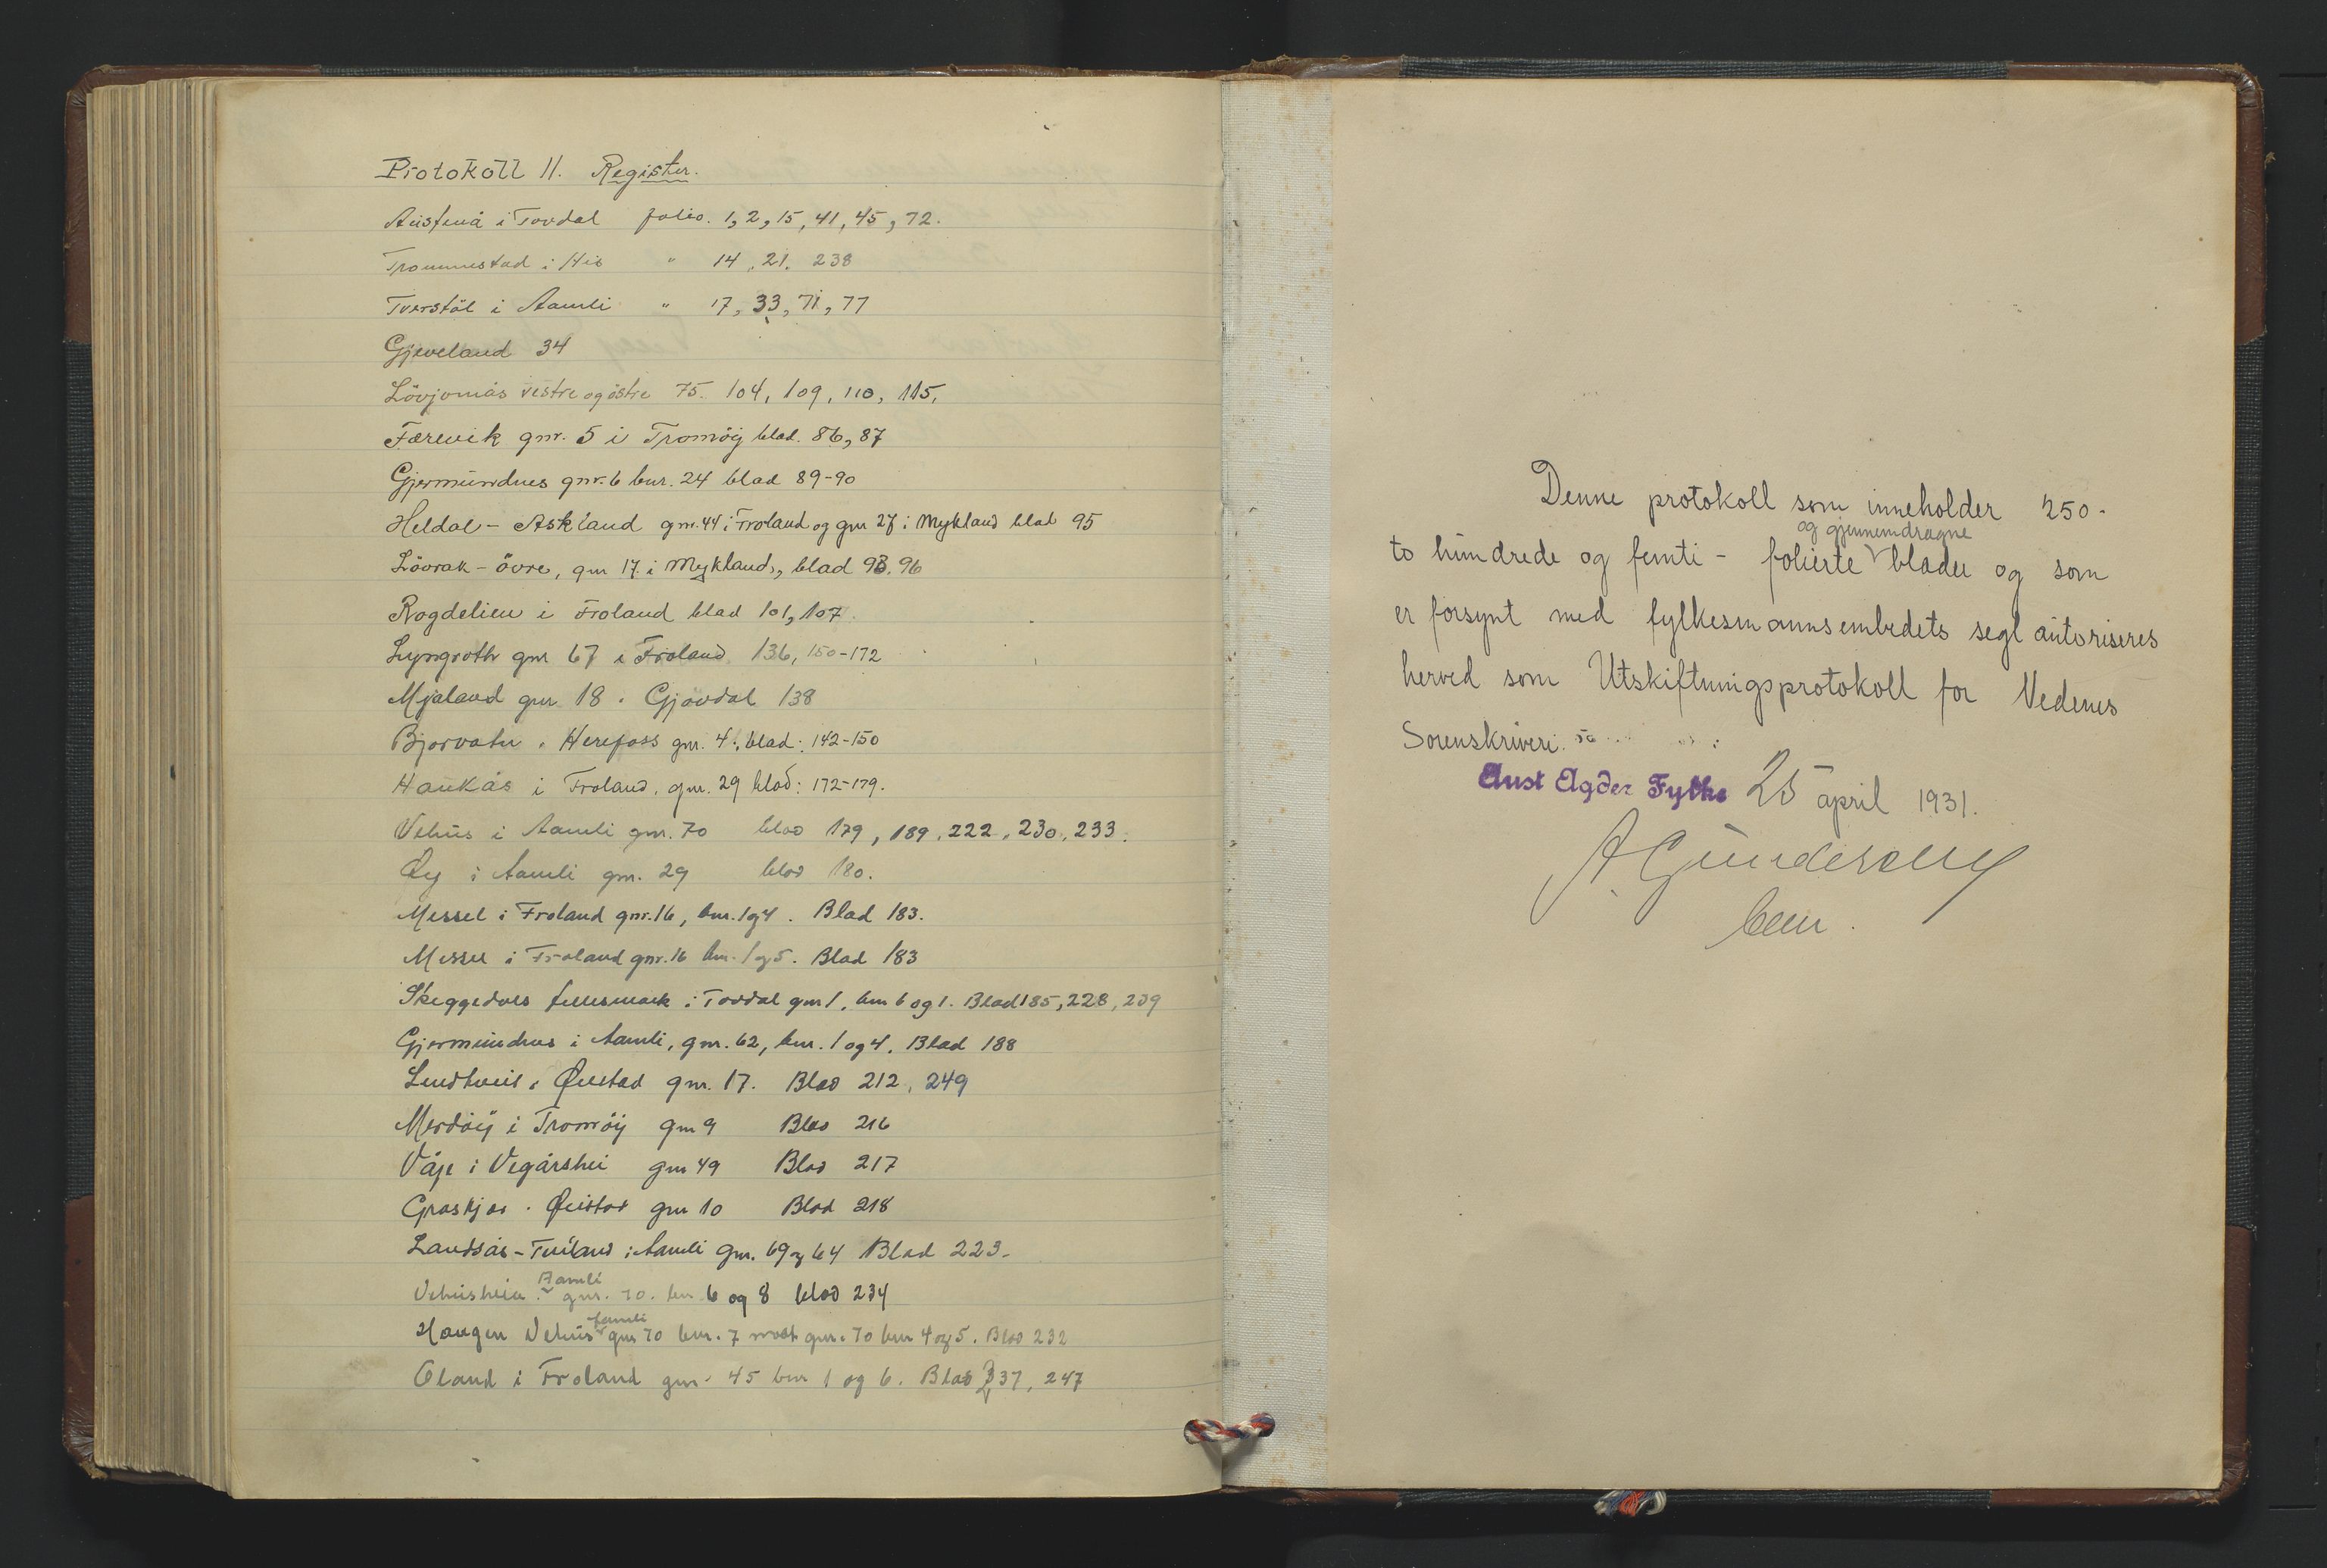 Protokoll 11. Register.
Austenå i Tovdal folio. 1, 2, 15, 41, 45, 72.
Trommestad i His " 14, 21. 238
Tverstöl i Aamli " 17, 33, 71, 77
Gjeveland 34
Lövjomås vestre og östre 75. 104, 109, 110, 115,
Færevik gnr. 5 i Tromöy blad. 86, 87
Gjermundnes gnr. 6 bnr. 24 blad 89-90
Heldal - Askland gnr. 44 i Froland og gnr 27 i Mykland blad 95
Lövrak - övre, gnr 17 i Mykland, blad 93. 96
Rogdelien i Froland blad 101, 107.
Lyngroth gnr 67 i Froland 136, 150-172
Mjaland gnr 18 i Gjövdal 138
Bjorvatn i Herefoss gnr. 4, blad: 142-150
Haukås i Froland, gnr. 29 blad: 172-179.
Vehus i Aamli gnr. 70 blad 179, 189, 222, 230, 233.
Øy i Aamli gnr. 29 blad 180.
Messel i Froland gnr. 16, bnr. 1 og 4. Blad 183.
Messel i Froland gnr. 16 bnr. 1 og 5. Blad 183
Skeggedals fellesmark i Tovdal gnr 1, bnr 6 og 1. Blad 185, 228, 239
Gjermundnes i Aamli, gnr. 62, bnr. 1 og 4. Blad 188
Lindtveit i Øiestad gnr. 17. Blad 212, 249
Merdöy i Tromöy gnr 9 Blad 216
Våje i Vegårshei gnr 49 Blad 217
Graskjær i Øiestad gnr 10 Blad 218
Landsås - i Aamli gnr. 69 og 64 Blad 223.
Vehusheia i Aamli gnr. 70. bnr 6 og 8 blad 234
Haugen Vehus Aamli gnr 70 bnr. 7 mot gnr. 70 bnr 4 og 5. Blad 232
Öland i Froland gnr. 45 bnr 1 og 6. Blad 237, 247
Denne protokoll som inneholder 250 -
og gjennemdragne
to hundrede og femti - folierte blader og som
er forsynt med fylkesmannsembedets segl autoriseres
herved som Utskiftningsprotokoll for Nedenes
Sorenskriveri.
Aust Agder Fylke 25 april 1931.
A Gundersen